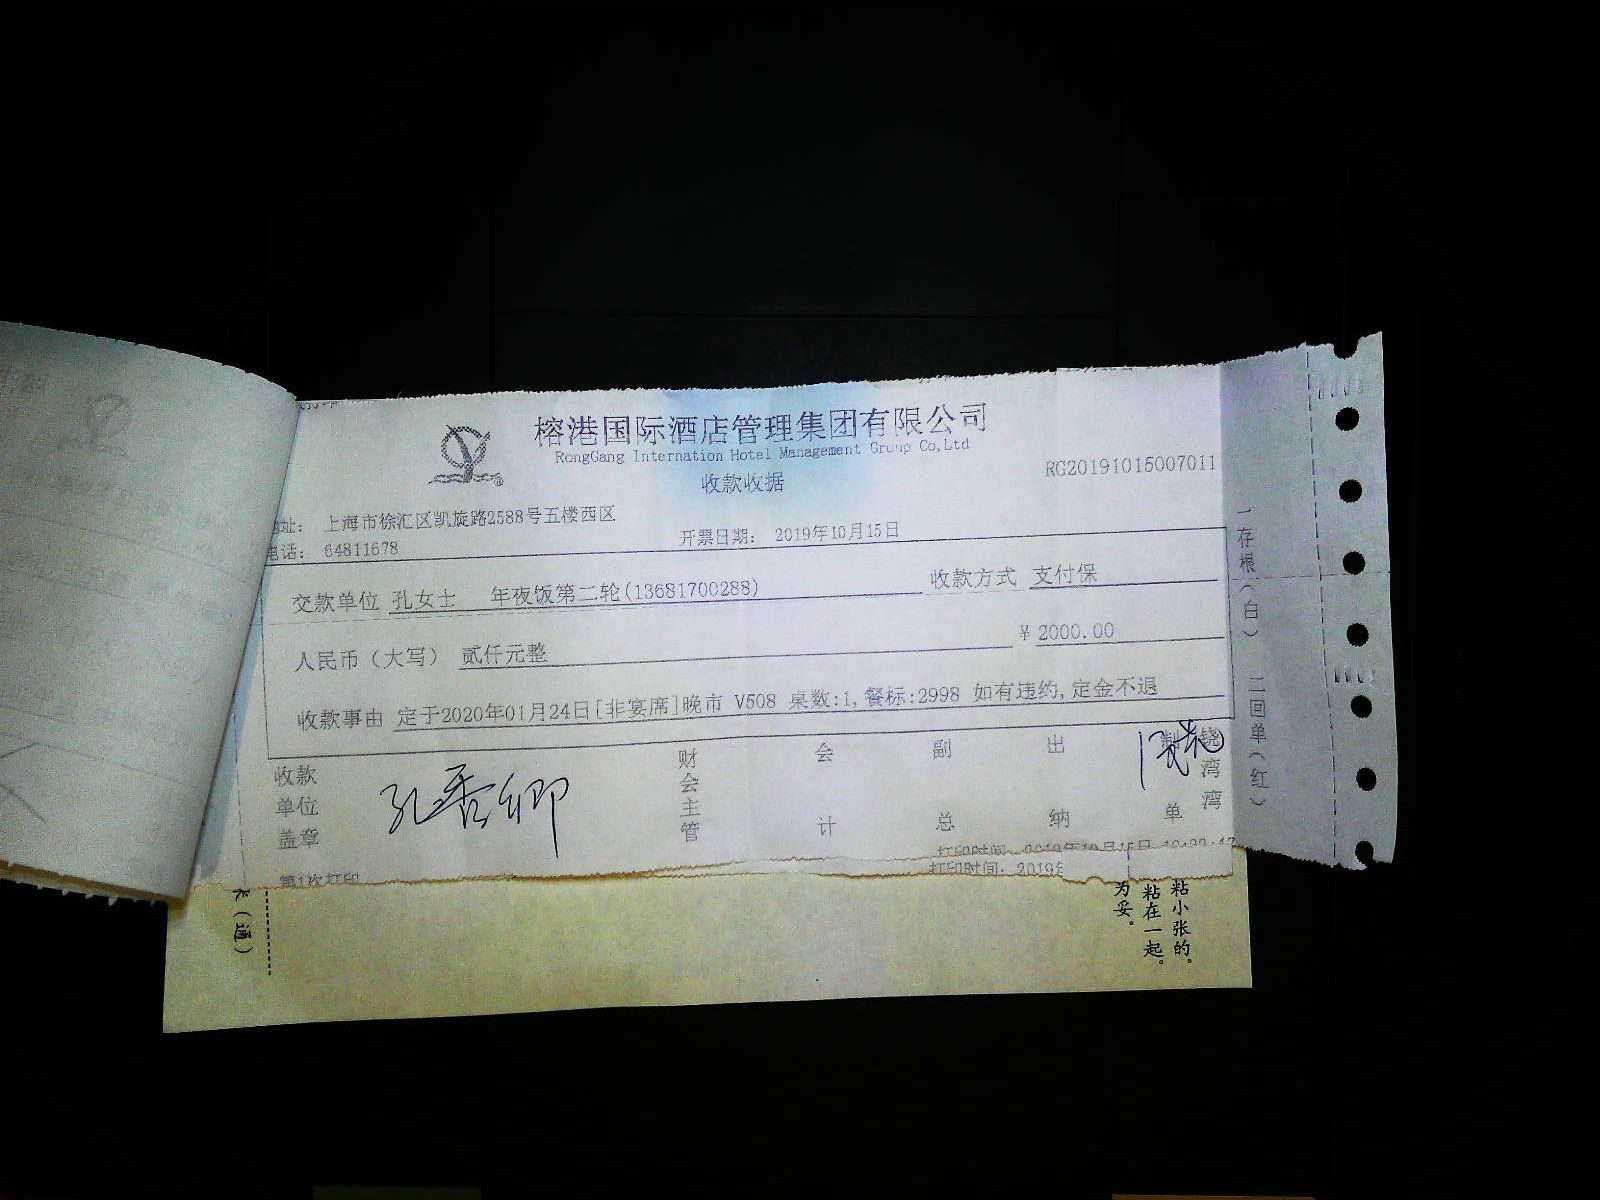 榕港国际酒店管理集团有限公司
RongGang Internation Hotel Management Group Co,Ltd
收款收据
RG20191015007011
地址： 上海市徐汇区凯旋路2588号五楼西区
电话： 64811678
开票日期： 2019年10月15日
交款单位 孔女士 年夜饭第二轮(13681700288) 收款方式 支付保
人民币（大写） 贰仟元整 ¥ 2000.00
收款事由 定于2020年01月24日[非宴席]晚市 V508 桌数:1,餐标:2998 如有违约,定金不退
收款单位盖章
孔香卿
财会主管
会计
副总
出纳
制单
饶湾湾
第1次打印
打印时间：2019年10月15日
打印时间：2019年
一存根（白） 二回单（红）
粘小张的。
粘在一起。
为妥。
（通）